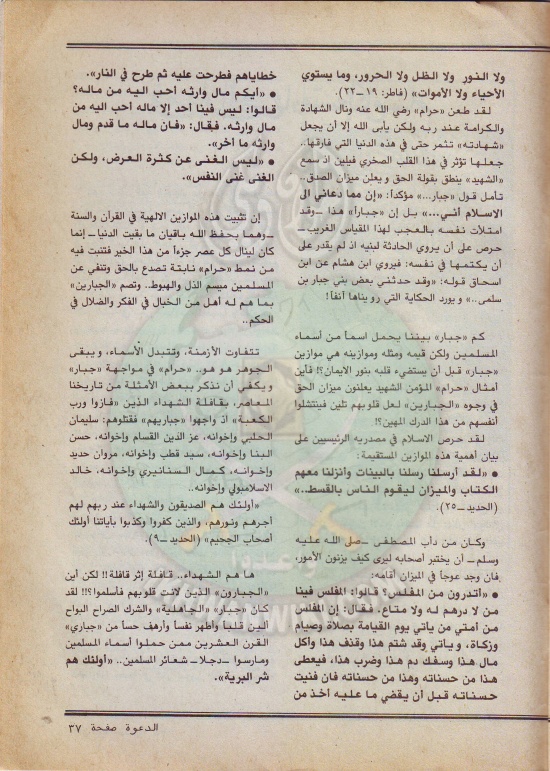 ولا النور ولا الظل ولا الحرور، وما يستوي
الأحياء ولا الأموات» (فاطر: ١٩ــ٢٢).
لقد طعن «حرام» رضي الله عنه ونال الشهادة
والكرامة عند ربه ولكن يأبى الله إلا أن يجعل
«شهادته» تثمر حتى في هذه الدنيا التي فارقها..
جعلها تؤثر في هذا القلب الصخري فيلين اذ سمع
«الشهيد» ينطق بقولة الحق و يعلن ميزان الصدق..
تأمل قول «جبار...» مؤكداً: «إن مما دعاني الى
الاسلام أنني...» بل إن «جباراً» هذا ــ وقد
امتلأت نفسه بالعجب لهذا المقياس الغريب ــ
حرص على أن يروي الحادثة لبنيه اذ لم يقدر على
أن يكتمها في نفسه: فيروي ابن هشام عن ابن
اسحاق قوله: «وقد حدثني بعض بني جبار بن
سلمى..» و يورد الحكاية التي رو يناها آنفاً!
كم «جبار» بيننا يحمل اسماً من أسماء
المسلمين ولكن قيمه ومثله وموازينه هي موازين
«جبار» قبل أن يستضيء قلبه بنور الايمان؟! فأين
أمثال «حرام» المؤمن الشهيد يعلنون ميزان الحق
في وجوه «الجبارين» لعل قلوبهم تلين فينتشلوا
أنفسهم من هذا الدرك المهين؟!
لقد حرص الاسلام في مصدريه الرئيسيين على
بيان أهمية هذه الموازين المستقيمة:
● «لقد أرسلنا رسلنا بالبينات وأنزلنا معهم
الكتاب والميزان ليقوم الناس بالقسط..»
(الحديد ــ ٢٥).
وكان من دأب المصطفى ــ صلى الله عليه
وسلم ــ أن يختبر أصحابه ليرى كيف يزنون الأمور،
فان وجد عوجاً في الميزان أقامه:
● «أتدرون من المفلس؟ قالوا: المفلس فينا
من لا درهم له ولا متاع، فقال: إن المفلس
من أمتي من يأتي يوم القيامة بصلاة وصيام
وزكاة، و يأتي وقد شتم هذا وقذف هذا وأكل
مال هذا وسفك دم هذا وضرب هذا، فيعطى
هذا من حسناته وهذا من حسناته فان فنيت
حسناته قبل أن يقضي ما عليه أخذ من
خطاياهم فطرحت عليه ثم طرح في النار».
● «أيكم مال وارثه أحب اليه من ماله؟
قالوا: ليس فينا أحد إلا ماله أحب اليه من
مال وارثه. فقال: «فان ماله ما قدم ومال
وارثه ما أخر».
● «ليس الغنى عن كثرة العرض، ولكن
الغنى غنى النفس».
إن تثبيت هذه الموازين الالهية في القرآن والسنة
ــ وهما بحفظ الله باقيان ما بقيت الدنيا ــ إنما
كان لينال كل عصر جزءاً من هذا الخير فتنبت فيه
من نمط «حرام» نابتة تصدع بالحق وتنفي عن
المسلمين ميسم الذل والهبوط.. وتصم «الجبارين»
بما هم له أهل من الخبال في الفكر والضلال في
الحكم..
تتفاوت الأزمنة، وتتبدل الأسماء، و يبقى
الجوهر هو هو.. «حرام» في مواجهة «جبار»
و يكفي أن نذكر ببعض الأمثلة من تاريخنا
المعاصر، بقافلة الشهداء الذين «فازوا ورب
الكعبة» اذ واجهوا «جباريهم» فقتلوهم: سليمان
الحلبي وإخوانه، عز الدين القسام وإخوانه، حسن
البنا وإخوانه، سيد قطب وإخوانه، مروان حديد
وإخوانه، كمال السنانيري وإخوانه، خالد
الاسلامبولي وإخوانه..
«أولئك هم الصديقون والشهداء عند ربهم لهم
أجرهم ونورهم، والذين كفروا وكذبوا بآياتنا أولئك
أصحاب الجحيم» (الحديد ــ ٩).
ها هم الشهداء.. قافلة إثر قافلة!! لكن أين
«الجبارون» الذين لانت قلوبهم فأسلموا؟!! لقد
كان «جبار» «الجاهلية» والشرك الصراح البواح
ألين قلباً وأطهر نفساً وأرهف حساً من «جباري»
القرن العشرين ممن حملوا أسماء المسلمين
ومارسوا ــ دجلا ــ شعائر المسلمين.. «أولئك هم
شر البرية».
الدعوة صفحة ٣٧